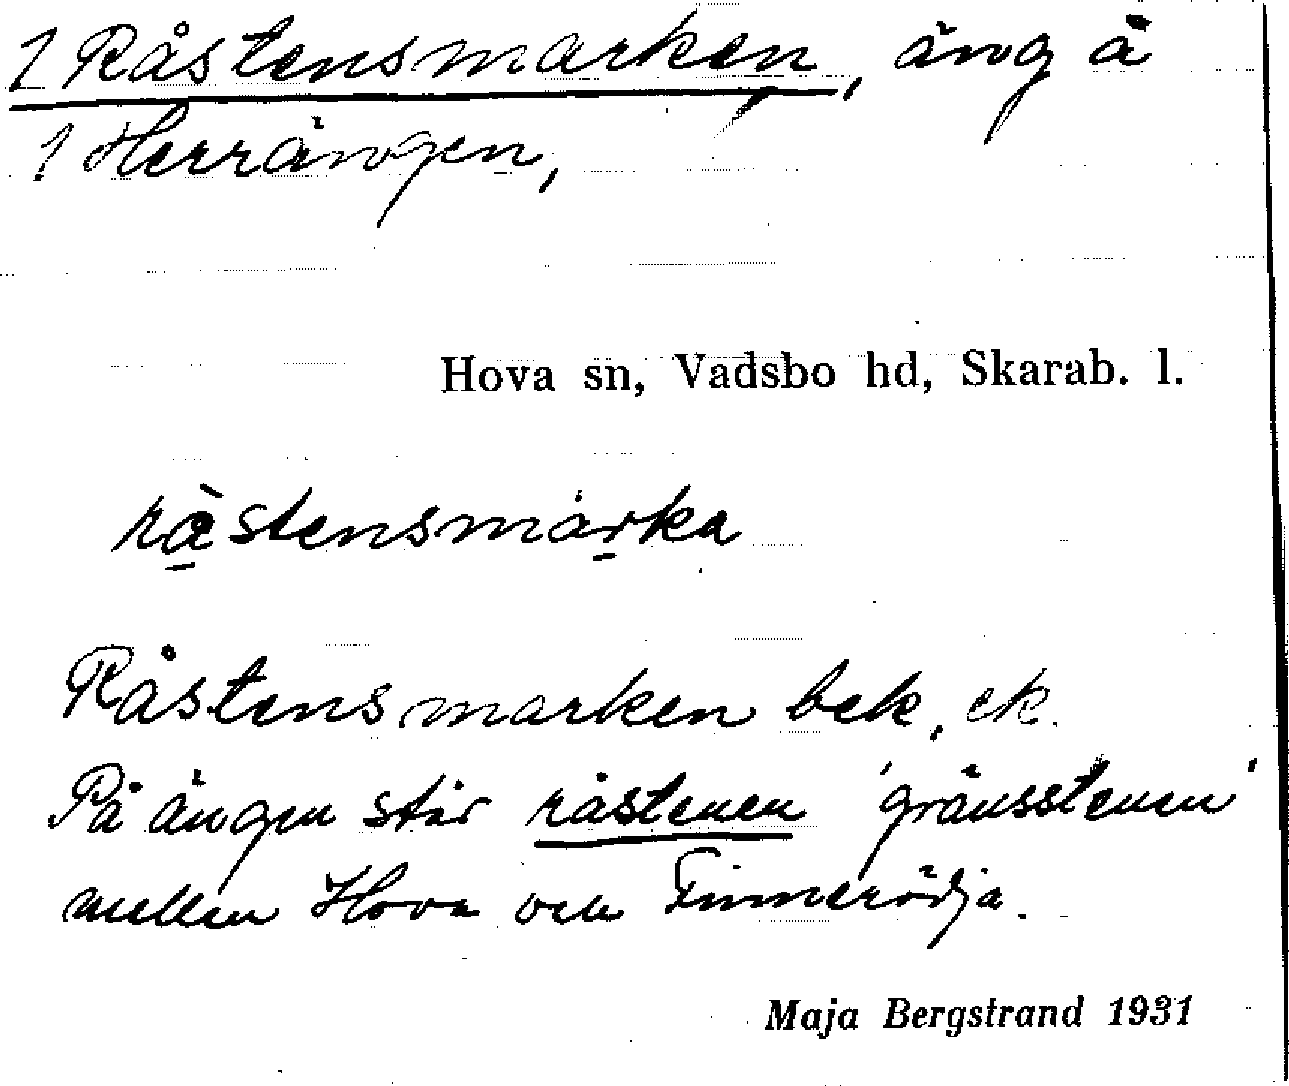 1 Råstensmarken, äng å
1 Herrängen,
Hova sn, Vadsbo hd, Skarab. l.
rà̱stensmàṟka
Råstensmarken bek, ek.
På ängen står råstenen 'gränsstenen'
mellan Hova och Finnerödja.
Maja Bergstrand 1931